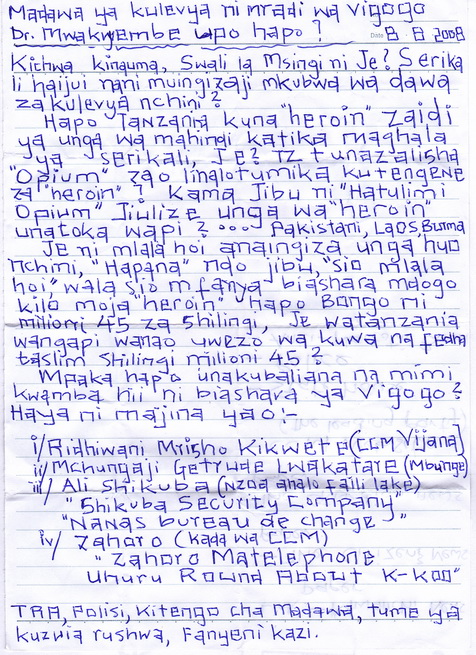 Madawa ya kulevya ni mradi wa Vigogo
Dr. Mwakyembe upo hapo? Date 8 8 2008
Kichwa kinauma, Swali la Msingi ni Je? Serika
li haijui nani muingizaji mkubwa wa dawa
za kulevya nchini?
Hapo Tanzania kuna "heroin" zaidi
ya unga wa mahindi katika maghala
ya serikali, Je? TZ tunazalisha
"Opium" zao linalotumika kutengene
za "heroin"? Kama Jibu ni "Hatulimi
Opium" Jiulize unga wa "heroin"
unatoka wapi? ... Pakistani, Laos, Burma
Je ni mlala hoi anaingiza unga huo
nchini, "Hapana" ndo jibu, "sio mlala
hoi," wala sio mfanya biashara mdogo
kilo moja "heroin" hapo Bongo ni
milioni 45 za Shilingi, Je watanzania
wangapi wanao uwezo wa kuwa na fedha
taslim Shilingi milioni 45?
Mpaka hapo unakubaliana na mimi
kwamba hii ni biashara ya Vigogo?
Haya ni majina yao:-
i/ Ridhiwani Mrisho Kikwete (CCM Vijana)
ii/ Mchungaji Getrude Lwakatare (Mbunge)
iii/ Ali Shikuba (Nzoa analo faili lake)
"Shikuba Security Company"
"Nanas bureau de change"
iv/ Zahoro (kada wa CCM)
"Zahoro Matelephone
Uhuru Round About K-koo"
TRA, Polisi, Kitengo cha Madawa, tume ya
kuzuia rushwa, Fanyeni kazi.